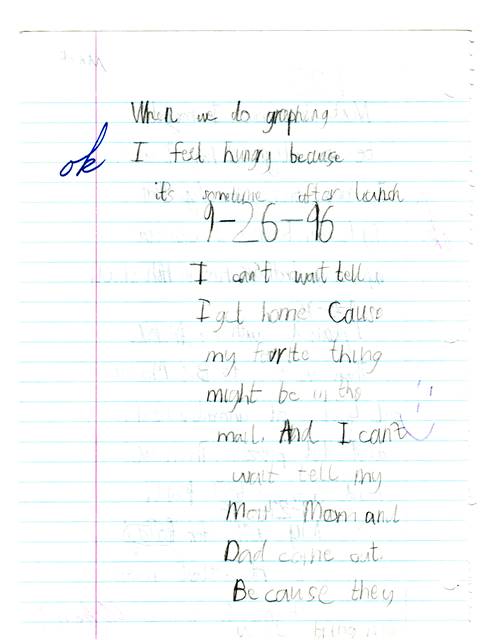 When we do graphing
ok
I feel hungry because
it's sometime after lunch
9-26-96
I can't wait tell
I get home Cause
my forite thing
might be in the
mail. And I can't
wait tell my
Mom and
Dad come out.
Because they